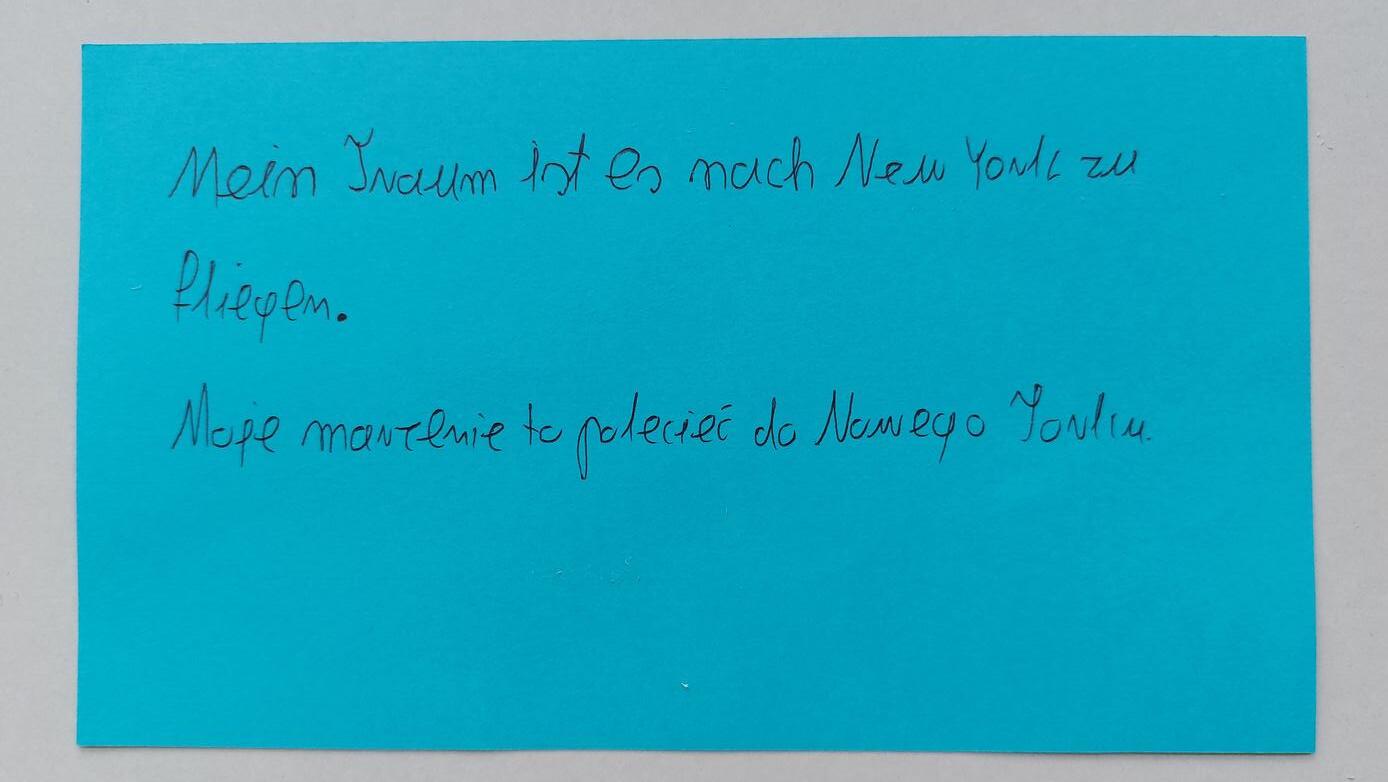 Mein Traum ist es nach New York zu
fliegen.
Moje marzenie to polecieć do Nowego Yorku.